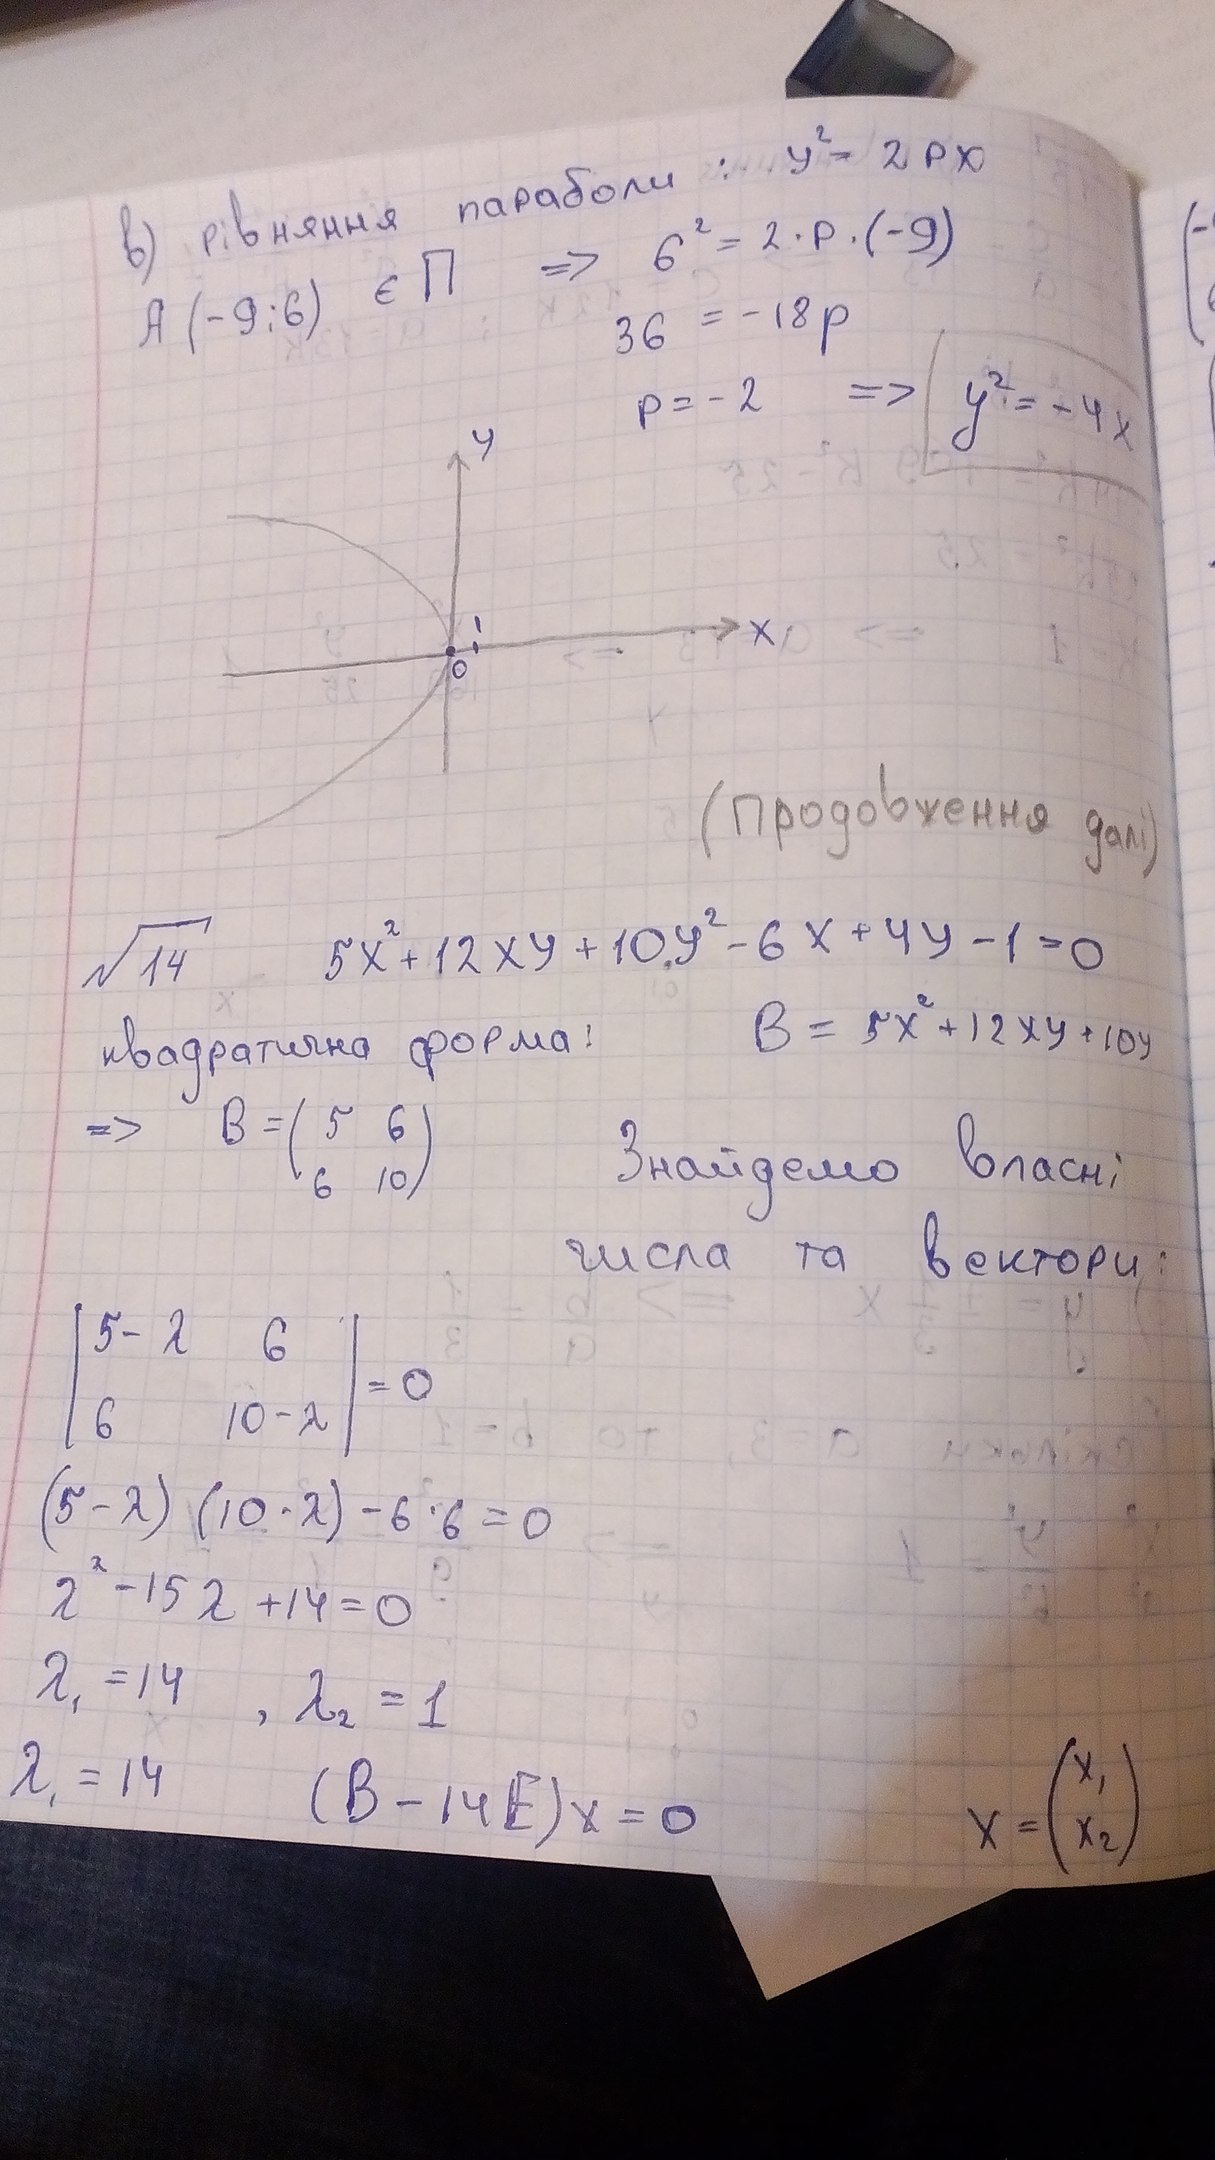 в) рівняння параболи: y² = 2px
A(-9;6) ∈ П => 6² = 2·p·(-9)
36 = -18p
p = -2 => y² = -4x
y
1
x
0 1
(Продовження далі)
√14 5x² + 12xy + 10y² - 6x + 4y - 1 = 0
квадратична форма: B = 5x² + 12xy + 10y
=> B = (5 6
6 10)
Знайдемо власні
числа та вектори:
|5-λ 6|
|6 10-λ| = 0
(5-λ)(10-λ) - 6·6 = 0
λ² - 15λ + 14 = 0
λ₁ = 14 , λ₂ = 1
λ₁ = 14 (B - 14E)x = 0 x = (x₁
x₂)